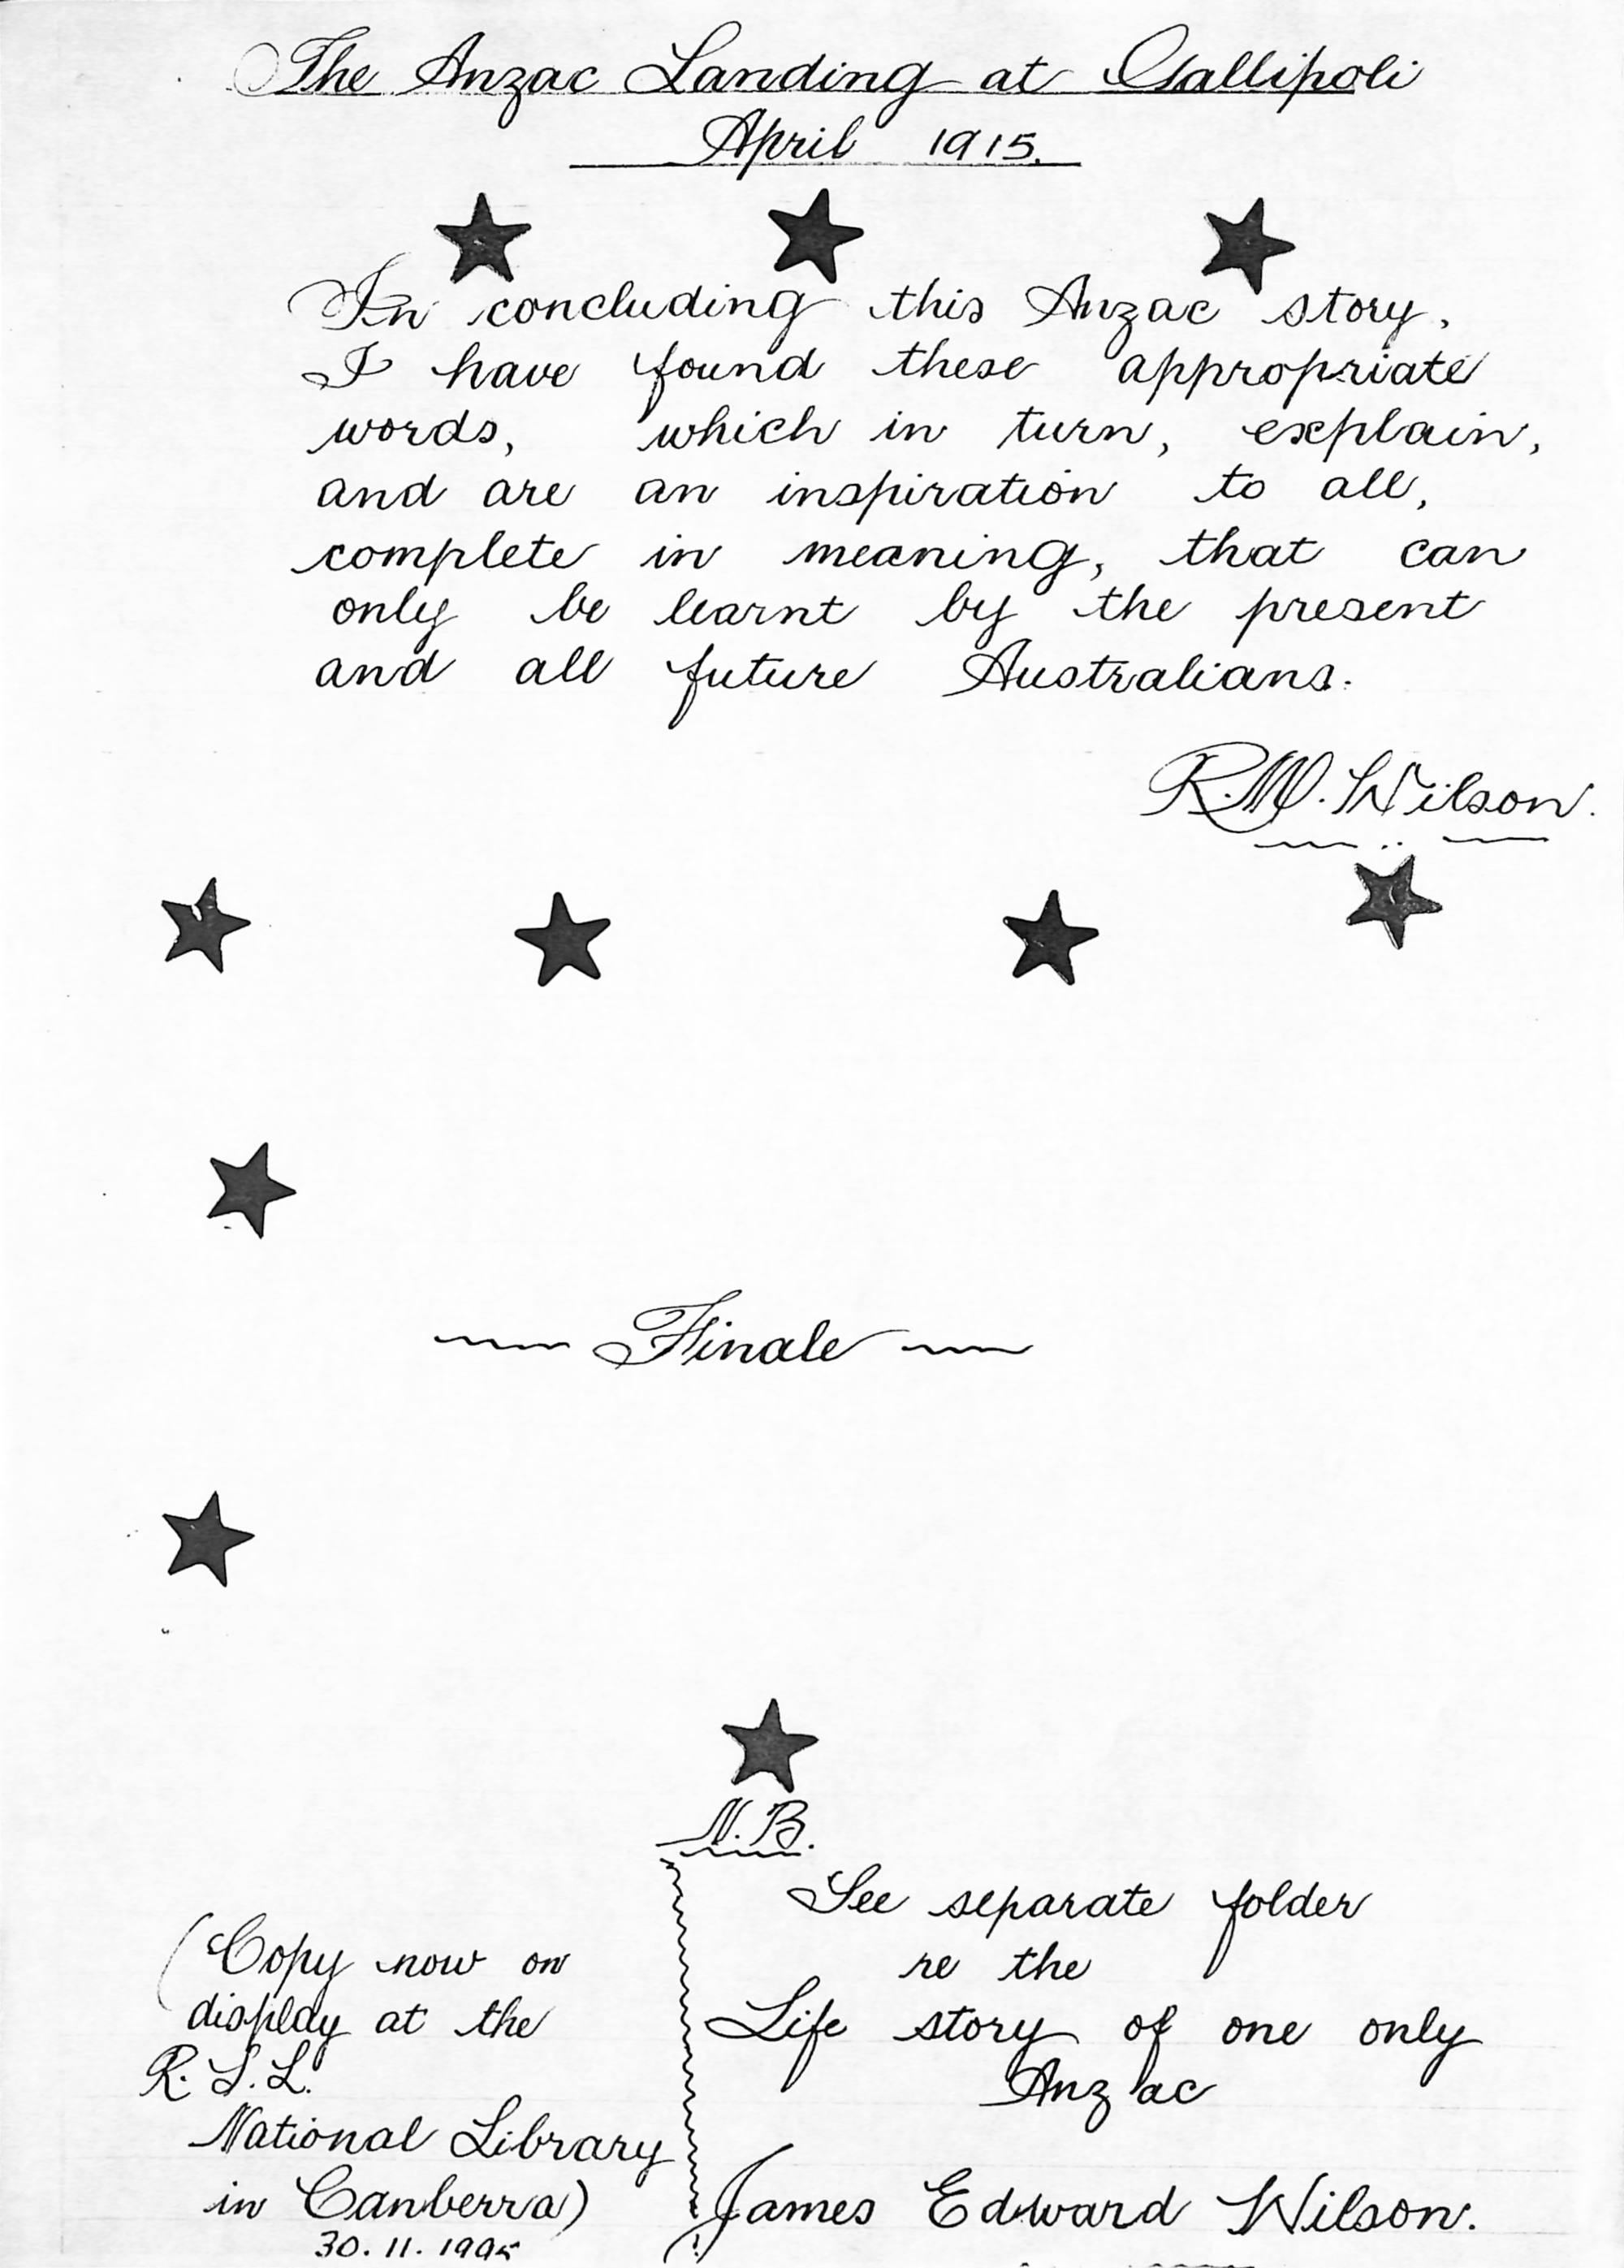 The Anzac Landing at Gallipoli
April 1915.
In concluding this Anzac story,
I have found these appropriate
words, which in turn, explain,
and are an inspiration to all,
complete in meaning, that can
only be learnt by the present
and all future Australians.
R.W. Wilson.
Finale
N.B.
See separate folder
re the
Life story of one only
Anzac
James Edward Wilson.
(Copy now on
display at the
R.S.L.
National Library
in Canberra)
30.11.1995